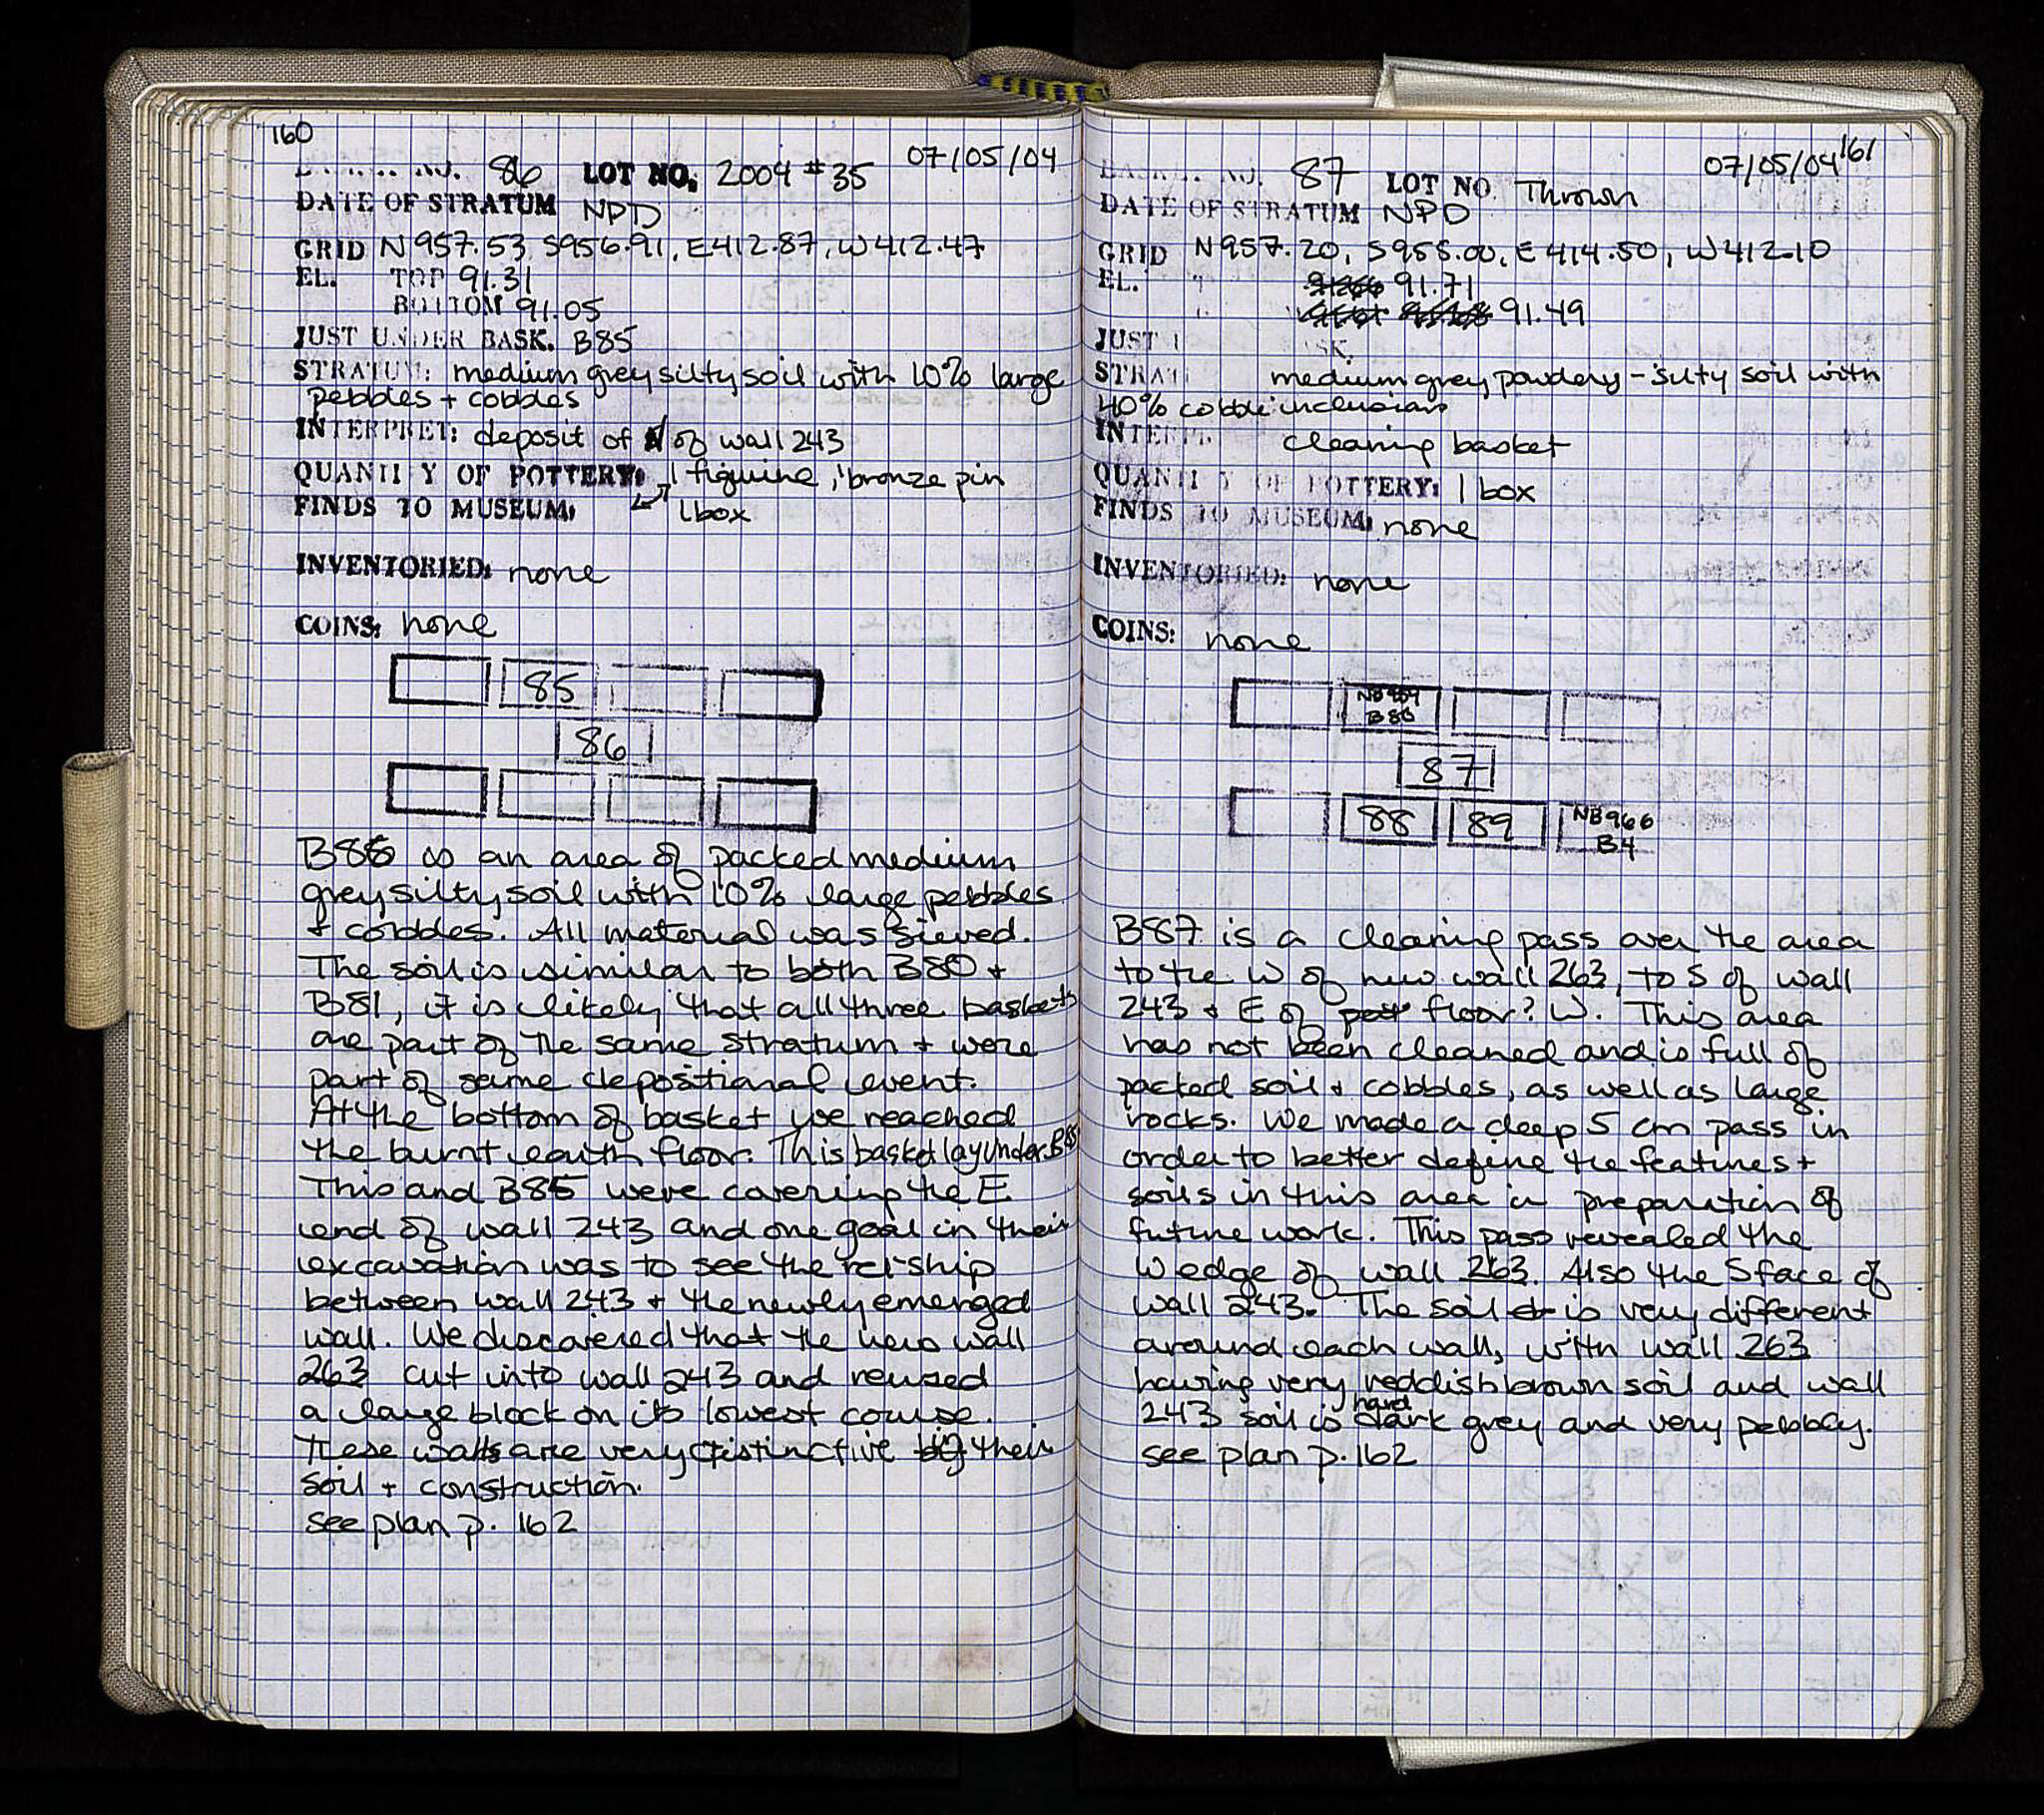 160
07/05/04
NO. 86 LOT NO. 2004 #35
DATE OF STRATUM NPD
GRID N957.53, S956.91, E412.87, W412.47
EL. TOP 91.31
BOTTOM 91.05
JUST UNDER BASK. B85
STRATUM: medium grey silty soil with 10% large
pebbles + cobbles
INTERPRET: deposit of N of wall 243
QUANTITY OF POTTERY: 1 figurine, 1 bronze pin
FINDS TO MUSEUM: 1 box
INVENTORIED: none
COINS: none
85
86
B86 is an area of packed medium
grey silty soil with 10% large pebbles
+ cobbles. All material was sieved.
The soil is similar to both B80 +
B81, it is likely that all three baskets
are part of the same stratum + were
part of same depositional event.
At the bottom of basket we reached
the burnt earth floor. This basket lay under B85
This and B85 were covering the E
end of wall 243 and one goal in their
excavation was to see the rel-ship
between wall 243 + the newly emerged
wall. We discovered that the new wall
263 cut into wall 243 and reused
a large block on its lowest course.
These walls are very distinctive by their
soil + construction.
see plan p. 162
161
07/05/04
BASKET NO. 87 LOT NO Thrown
DATE OF STRATUM NPD
GRID N957.20, S955.00, E414.50, W412.10
EL. 91.71
91.49
JUST
STRAT medium grey powdery-silty soil with
40% cobble inclusions
INTERP. cleaning basket
QUANTITY OF POTTERY: 1 box
FINDS TO MUSEUM: none
INVENTORIED: none
COINS: none
NB959
B86
87
88 89 NB966
B4
B87 is a cleaning pass over the area
to the W of new wall 263, to S of wall
243 + E of floor? W. This area
has not been cleaned and is full of
packed soil + cobbles, as well as large
rocks. We made a deep 5 cm pass in
order to better define the features +
soils in this area in preparation of
future work. This pass revealed the
W edge of wall 263. Also the S face of
wall 243. The soil is very different
around each wall, with wall 263
having very reddish brown soil and wall
243 soil is hard dark grey and very pebbley.
see plan p. 162